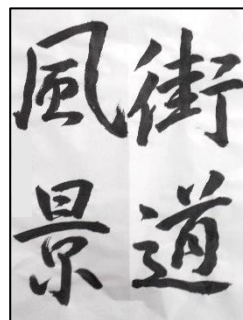 街道
風景